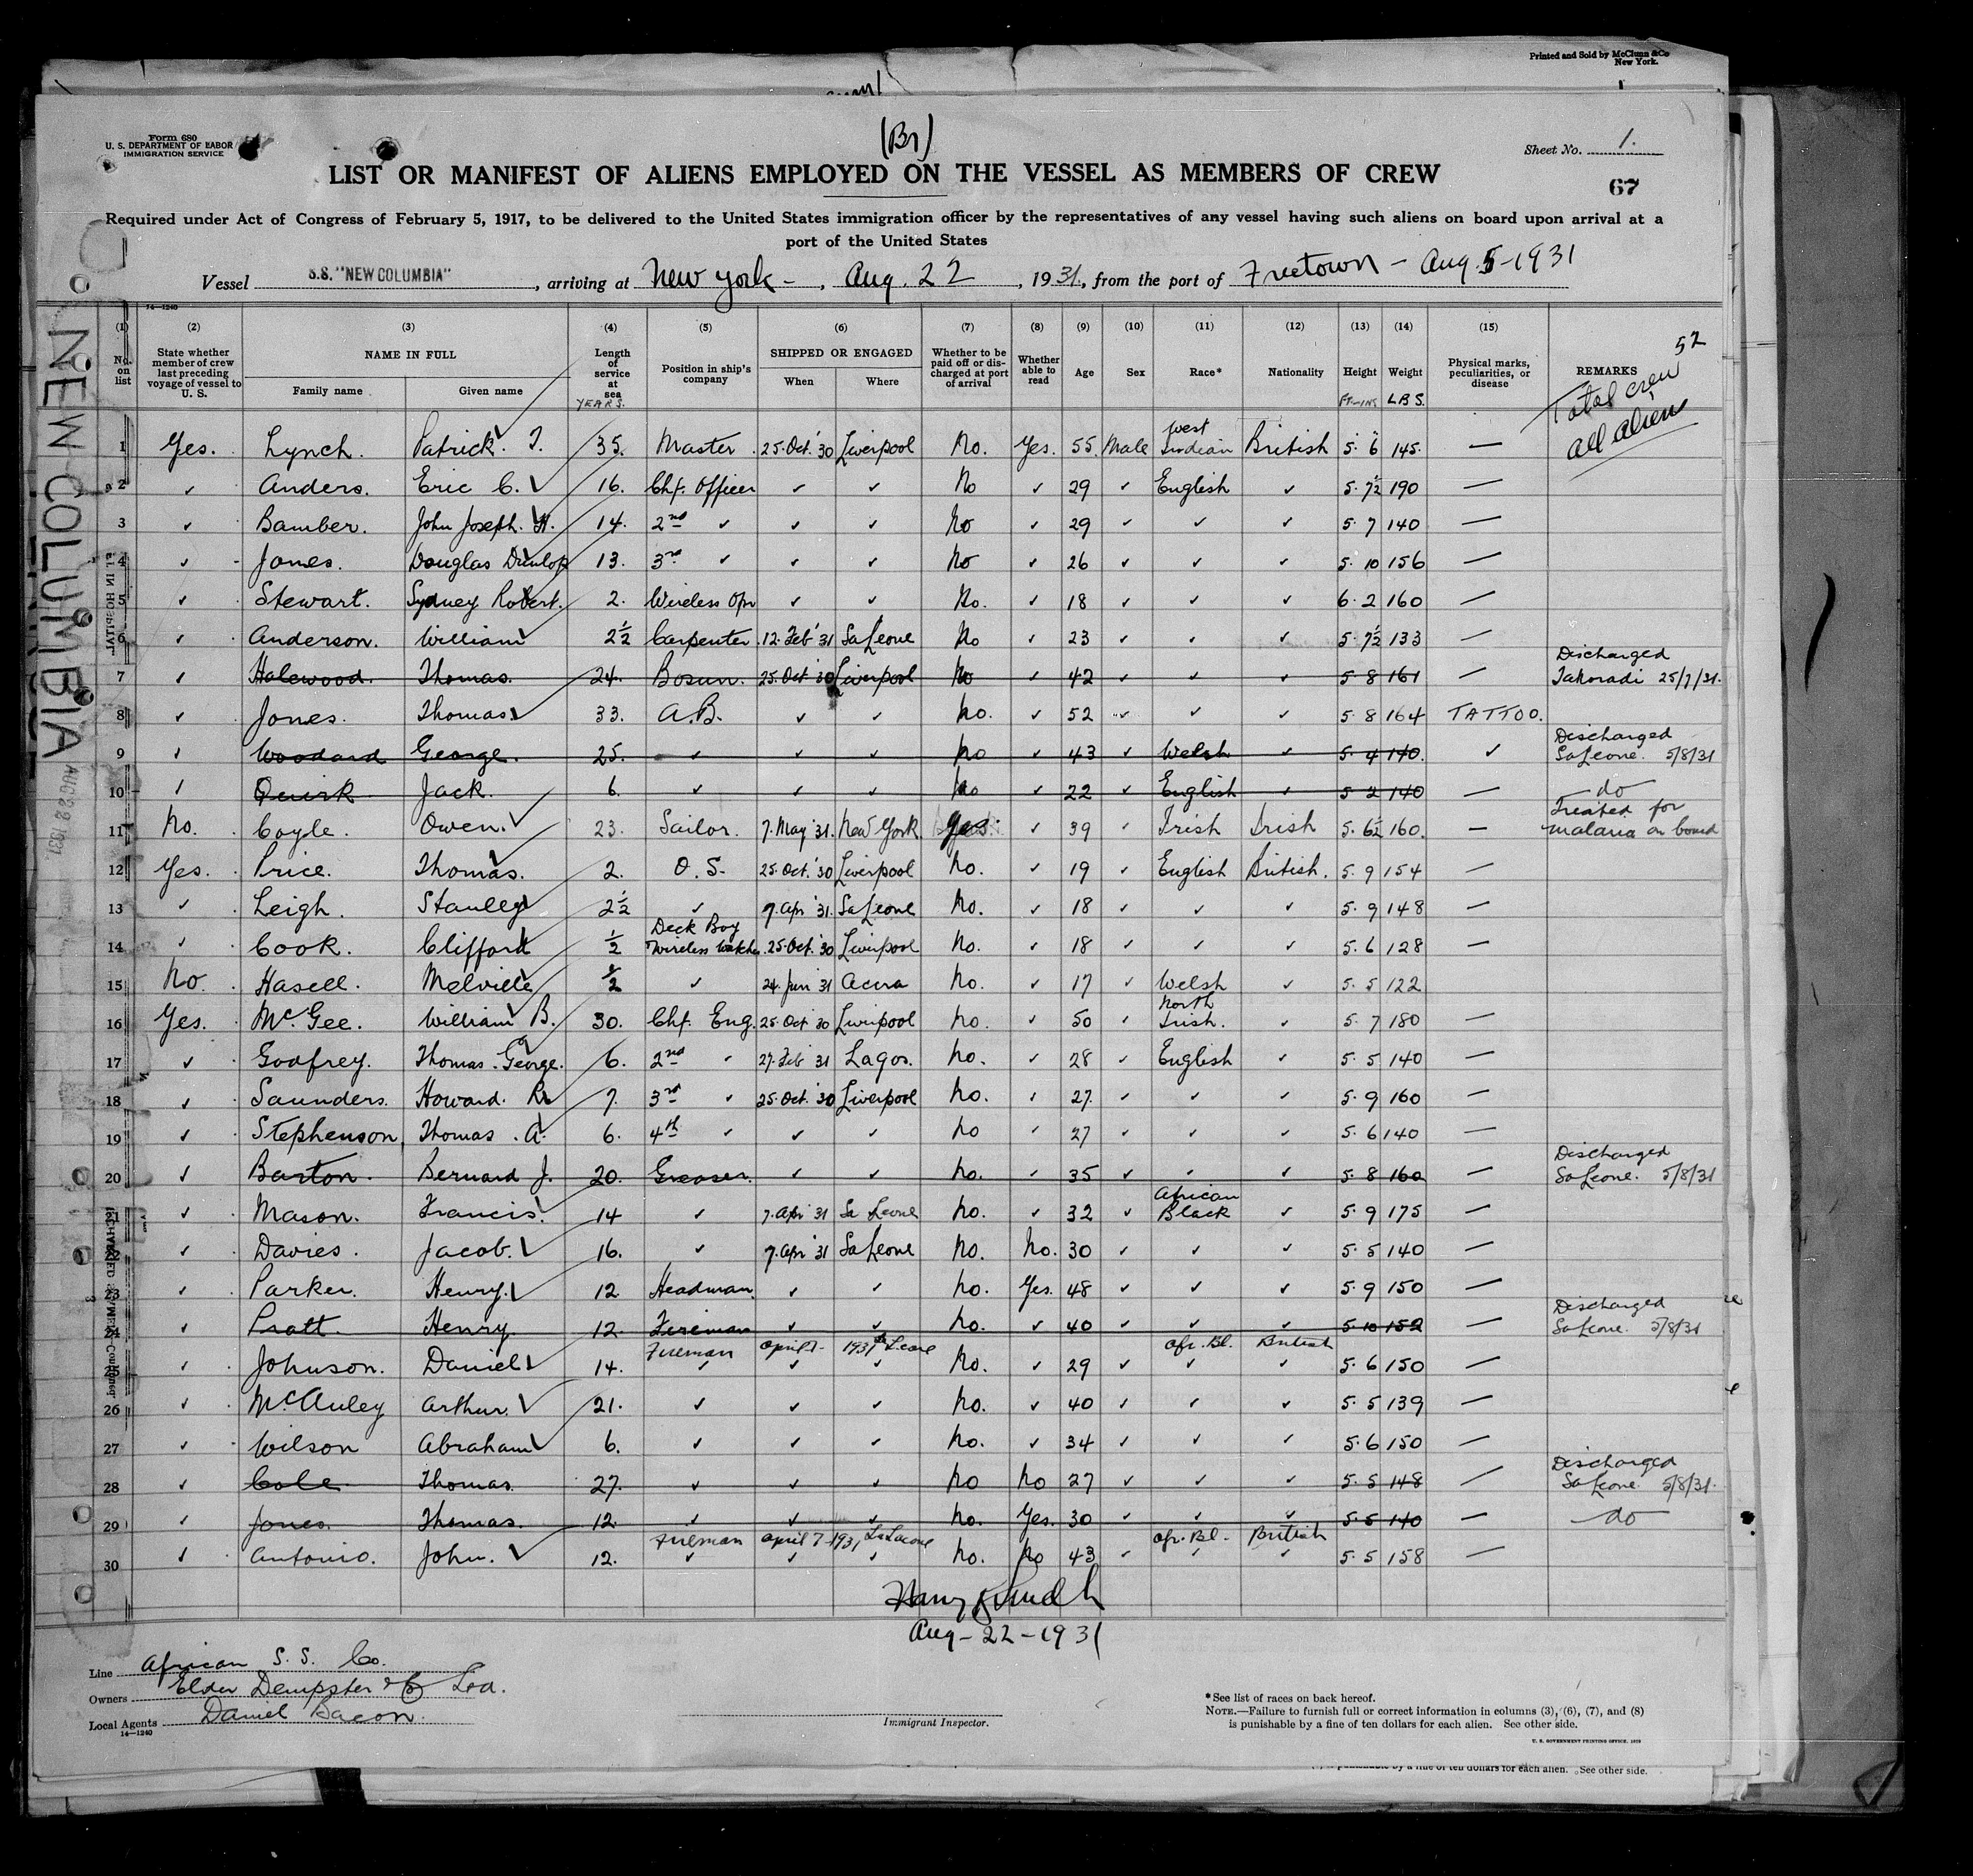 Printed and Sold by McClunn & Co
New York.
Form 680
U. S. DEPARTMENT OF LABOR
IMMIGRATION SERVICE
(Br)
Sheet No. 1.
LIST OR MANIFEST OF ALIENS EMPLOYED ON THE VESSEL AS MEMBERS OF CREW
67
Required under Act of Congress of February 5, 1917, to be delivered to the United States immigration officer by the representatives of any vessel having such aliens on board upon arrival at a
port of the United States
Vessel S.S. "NEW COLUMBIA", arriving at New York - , Aug. 22, 1931, from the port of Freetown - Aug. 5-1931
14-1240
(1) (2) (3) (4) (5) (6) (7) (8) (9) (10) (11) (12) (13) (14) (15)
No. on list
State whether member of crew last preceding voyage of vessel to U. S.
NAME IN FULL
Family name Given name
Length of service at sea YEARS.
Position in ship's company
SHIPPED OR ENGAGED
When Where
Whether to be paid off or discharged at port of arrival
Whether able to read
Age
Sex
Race*
Nationality
Height FT-INS
Weight LBS.
Physical marks, peculiarities, or disease
REMARKS
52
Total crew
all aliens
1 Yes. Lynch. Patrick. J. ✓ 35. Master. 25.Oct.'30 Liverpool No. Yes. 55. Male West Indian British 5. 6 145. —
2 ✓ Anders. Eric C. ✓ 16. Chf. Officer ✓ ✓ No ✓ 29 ✓ English ✓ 5.7½ 190 —
3 ✓ Bamber. John Joseph. H. 14. 2nd ✓ ✓ ✓ No ✓ 29 ✓ ✓ ✓ 5. 7 140 —
4 ✓ Jones. Douglas Dunlop 13. 3rd ✓ ✓ ✓ No ✓ 26 ✓ ✓ ✓ 5. 10 156 —
5 ✓ Stewart. Sydney Robert. 2. Wireless Opr ✓ ✓ No. ✓ 18 ✓ ✓ ✓ 6. 2 160 —
6 ✓ Anderson. William ✓ 2½ Carpenter. 12. Feb '31 Sa Leone No ✓ 23 ✓ ✓ ✓ 5.7½ 133 —
7 ✓ Halewood. Thomas. 24. Bosun. 25.Oct '30 Liverpool No ✓ 42 ✓ ✓ ✓ 5 8 161 — Discharged Takoradi 25/7/31.
8 ✓ Jones. Thomas ✓ 33. A.B. ✓ ✓ No. ✓ 52 ✓ ✓ ✓ 5. 8 164 TATTOO.
9 ✓ Woodard George. 25. ✓ ✓ ✓ No ✓ 43 ✓ Welsh ✓ 5. 4 140. ✓ Discharged Sa Leone. 5/8/31
10 ✓ Quirk Jack. 6. ✓ ✓ ✓ No ✓ 22 ✓ English ✓ 5 2 140 — do
11 No. Coyle. Owen. ✓ 23. Sailor. 7. May '31. New York Yes. ✓ 39 ✓ Irish Irish 5. 6½ 160. — Treated for malaria on board
12 Yes. Price. Thomas. 2. O. S. 25.Oct.'30 Liverpool No. ✓ 19 ✓ English British. 5. 9 154 —
13 ✓ Leigh. Stanley 2½ ✓ 7. Apr '31. Sa Leone No. ✓ 18 ✓ ✓ ✓ 5. 9 148 —
14 ✓ Cook. Clifford ½ Deck Boy Wireless Watcher. 25.Oct.'30 Liverpool No. ✓ 18 ✓ ✓ ✓ 5. 6 128 —
15 No. Hasell. Melville ½ ✓ 24. Jun 31 Accra No. ✓ 17 ✓ Welsh ✓ 5. 5 122
16 Yes. McGee. William B. 30. Chf. Eng. 25.Oct '30 Liverpool No. ✓ 50 ✓ North Irish. ✓ 5. 7 180 —
17 ✓ Godfrey. Thomas. George. 6. 2nd ✓ 27. Feb '31 Lagos. No. ✓ 28 ✓ English ✓ 5. 5 140 —
18 ✓ Saunders. Howard. R. 7. 3rd ✓ 25.Oct.'30 Liverpool No. ✓ 27. ✓ ✓ ✓ 5. 9 160 —
19 ✓ Stephenson Thomas. A. 6. 4th ✓ ✓ ✓ No ✓ 27 ✓ ✓ ✓ 5. 6 140 —
20 ✓ Barton. Bernard J. 20. Greaser. ✓ ✓ No. ✓ 35 ✓ ✓ ✓ 5. 8 160 — Discharged Sa Leone. 5/8/31
21 ✓ Mason. Francis. 14 ✓ 7. Apr '31 Sa Leone No. ✓ 32 ✓ African Black ✓ 5. 9 175 —
22 ✓ Davies. Jacob. ✓ 16. ✓ 7. Apr '31 Sa Leone No. No. 30 ✓ ✓ ✓ 5. 5 140 —
23 ✓ Parker. Henry. ✓ 12 Headman. ✓ ✓ No. Yes. 48 ✓ ✓ ✓ 5. 9 150 —
24 ✓ Pratt. Henry. 12. Fireman ✓ ✓ No. ✓ 40 ✓ ✓ ✓ 5 10 152 — Discharged Sa Leone. 5/8/31
Fireman April 7- 1931 Sa Leone Afr. Bl. British
25 ✓ Johnson. Daniel ✓ 14. ✓ ✓ ✓ No. ✓ 29 ✓ ✓ ✓ 5. 6 150 —
26 ✓ McAuley Arthur. ✓ 21. ✓ ✓ ✓ No. ✓ 40 ✓ ✓ ✓ 5. 5 139 —
27 ✓ Wilson Abraham ✓ 6. ✓ ✓ ✓ No. ✓ 34 ✓ ✓ ✓ 5. 6 150 —
28 ✓ Cole. Thomas. 27. ✓ ✓ ✓ No No 27 ✓ ✓ ✓ 5. 5 148 — Discharged Sa Leone 5/8/31.
29 ✓ Jones. Thomas. 12. ✓ ✓ ✓ No. Yes. 30 ✓ ✓ ✓ 5 5 140 — do
Fireman April 7-1931 Sa Leone Afr. Bl. British
30 ✓ Antonio. John. ✓ 12. ✓ ✓ ✓ No. No 43 ✓ ✓ ✓ 5. 5 158 —
Aug-22-1931
Line African S. S. Co.
Owners Elder Dempster & Co Ltd.
Local Agents Daniel Bacon.
14-1240
Immigrant Inspector.
*See list of races on back hereof.
NOTE.—Failure to furnish full or correct information in columns (3), (6), (7), and (8)
is punishable by a fine of ten dollars for each alien. See other side.
U. S. GOVERNMENT PRINTING OFFICE
is punishable by a fine of ten dollars for each alien. See other side.
NEW COLUMBIA
AUG 22 1931